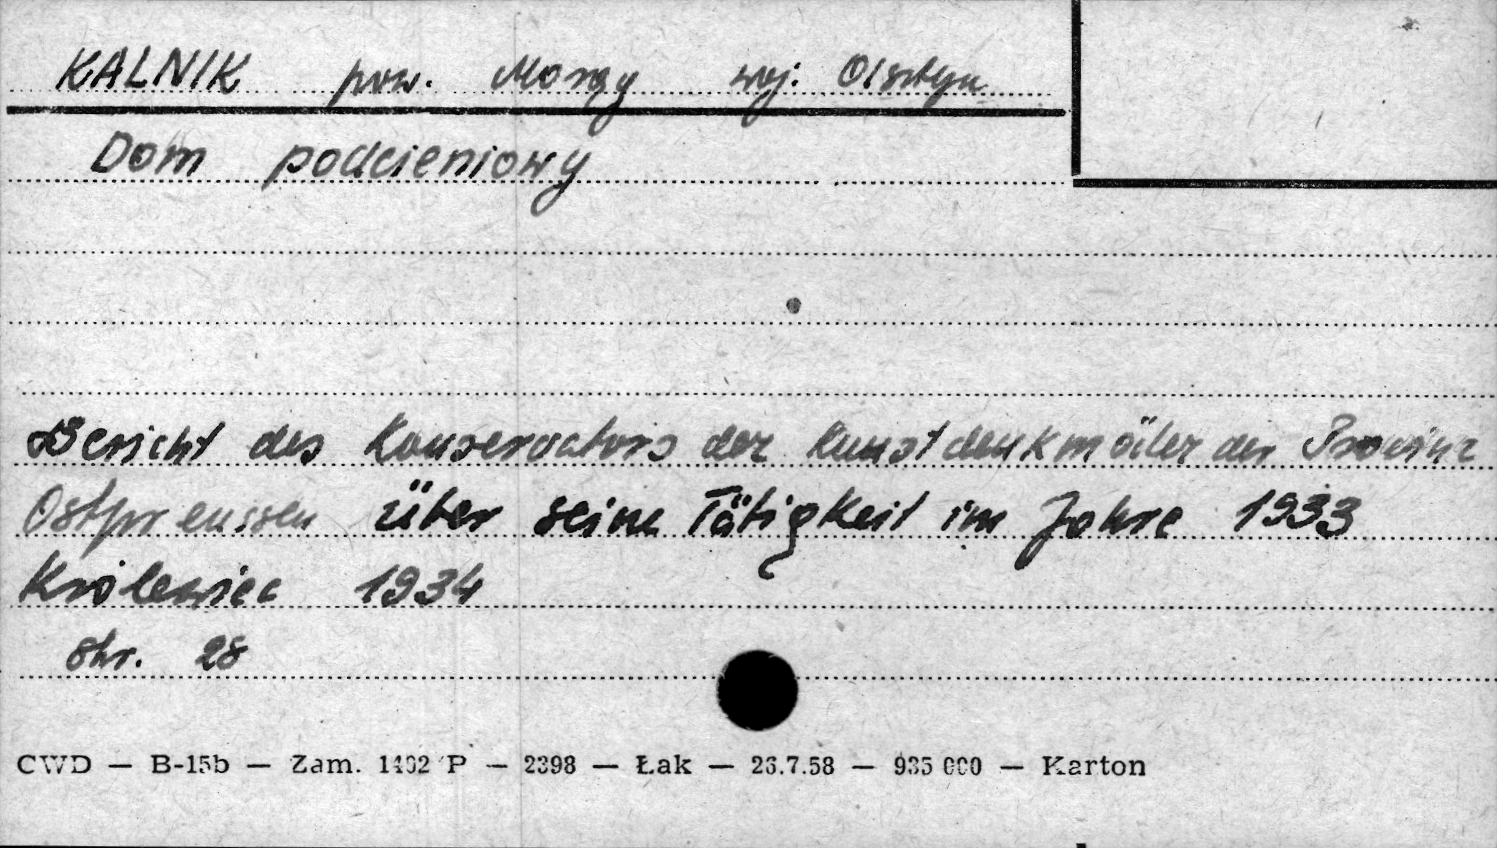 KALNIK pow. Morąg woj. Olsztyn
Dom podcieniowy
Bericht des Konservators der Kunstdenkmäler der Provinz
Ostpreussen über seine Tätigkeit im Jahre 1933
Królewiec 1934
str. 28
CWD — B-15b — Zam. 1402 P — 2398 — Łak — 23.7.58 — 935 000 — Karton